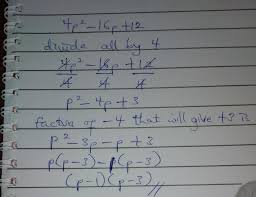 4p² - 16p + 12
divide all by 4
4p²/4 - 16p/4 + 12/4
p² - 4p + 3
factor of -4 that will give +3 is
p² - 3p - p + 3
p(p-3) - 1(p-3)
(p-1)(p-3)//